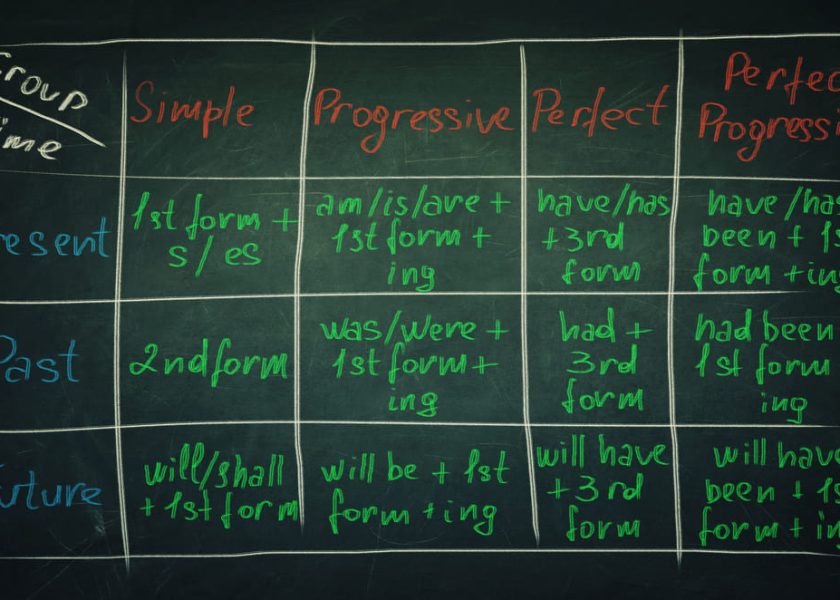 Group
ime
Simple
Progressive
Perfect
Perfec
Progressi
resent
1st form +
s/es
am/is/are +
1st form +
ing
have/has
+3rd
form
have/has
been + 1s
form +ing
Past
2nd form
was/were +
1st form +
ing
had +
3rd
form
had been
1st form
ing
uture
will/shall
+ 1st form
will be + 1st
form +ing
will have
+3rd
form
will have
been + 1s
form + in